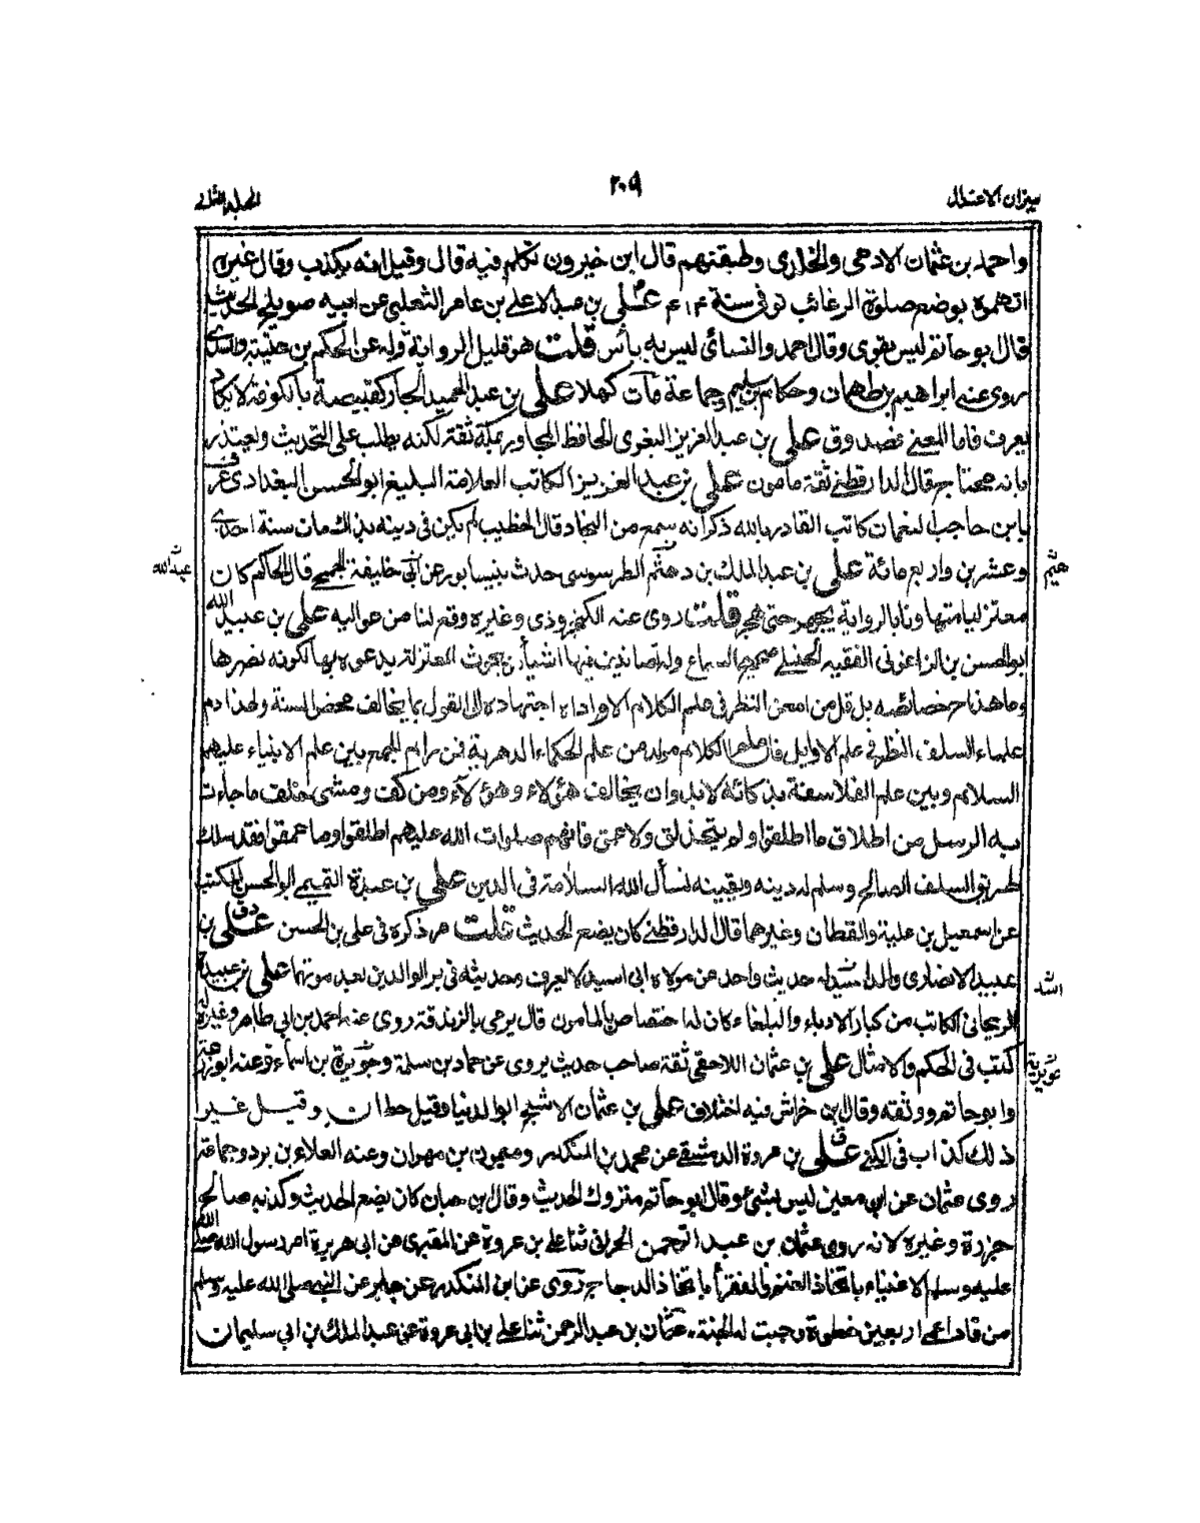 ميزان الاعتدال
٢٠٩
المجلد الثانى
واحمد بن عثمان الادمى والخلدى وطبقتهم قال ابن خيرون تكلم فيه قال وقيل انه يكذب وقال غيره
اتهموه بوضع صلوة الرغائب توفى سنة ٤١٤ م على بن عبد الاعلى بن عامر الثعلبى عن ابيه صويلح الحديث
قال بوحاتم ليس بقوى وقال احمد والنسائى ليس به بأس قلت هو قليل الرواية وله عن الحكم بن عتيبة والسدى
روى عنه ابراهيم بن طهمان وحكام بن سليم وجماعة مات كهلا على بن عبد الحميد الجار كقبيصة بالكوفة لا يكاد
يعرف فاما المعنى فصدوق على بن عبد العزيز البغوى الحافظ المجاور بمكة ثقة لكنه يطلب على التحديث ويعتذر
بانه محتاج قال الدارقطنى ثقة مامون على بن عبد العزيز الكاتب العلامة البليغ ابو الحسن البغدادى عرف
بابن حاجب النعمان كاتب القادر بالله ذكر انه سمع من النجاد قال الخطيب لم يكن فى دينه بذاك مات سنة احدى
وعشرين واربع مائة على بن عبد الملك بن دهثم الطرسوسى حدث بنيسابور عن ابى خليفة الجمحى قال الحاكم كان
هيثم
عبد الله
معتزليا متهاونا بالرواية يجهر حتى هجر قلت روى عنه الكنجروذى وغيره وقع لنا من عواليه على بن عبيد الله
ابو الحسن بن الزاغونى الفقيه الحنبلى صحيح السماع وله تصانيف فيها اشياء من بحوث المعتزلة يدعوه بها لكونه نصرها
وما هذا من خصائصه بل قل من امعن النظر فى علم الكلام الا واداه اجتهاده الى القول بما يخالف محض السنة ولهذا ذم
علماء السلف النظر فى علم الاوايل فان علم الكلام مولد من علم الحكماء الدهرية فمن رام الجمع بين علم الانبياء عليهم
السلام وبين علم الفلاسفة بذكائه لا بد وان يخالف هؤلاء وهؤلاء ومن كف ومشى خلف ما جاءت
به الرسل من اطلاق ما اطلقوا ولم يتحذلق ولا عمق فانهم صلوات الله عليهم اطلقوا وما عمقوا فقد سلك
طريق السلف الصالح وسلم له دينه ويقينه نسأل الله السلامة فى الدين على بن عبدة التميمى ابو الحسن المكتب
عن اسمعيل بن علية والقطان وغيرهما قال الدارقطنى كان يضع الحديث قلت مر ذكره فى على بن الحسن دق على بن
عبيد الانصارى والد اسيد له حديث واحد عن مولاه ابى اسيد لا يعرف وحديثه فى بر الوالدين بعد موتهما على بن عبيدة
الريحانى الكاتب من كبار الادباء والبلغاء كان له اختصاص بالمامون قال يرمى بالزندقة روى عنه احمد بن ابى طاهر وغيره له
كتب فى الحكم والامثال على بن عثمان اللاحقى ثقة صاحب حديث يروى عن حماد بن سلمة وجويرية بن اسماء وعنه ابو زرعة
وابو حاتم ووثقه وقال بن خراش فيه اختلاف على بن عثمان الاشج ابو الدنيا وقيل حطان وقيل غير
ذلك كذاب فى الكنى ق على بن عروة الدمشقى عن محمد بن المنكدر وميمون بن مهران وعنه العلاء بن برد وجماعة
روى عثمان عن ابن معين ليس بشئ وقال ابو حاتم متروك الحديث وقال ابن حبان كان يضع الحديث وكذبه صالح
جزرة وغيره لانه روى عثمان بن عبد الرحمن الحرانى ثنا على بن عروة عن المقبرى عن ابى هريرة امر رسول الله صلى الله
عليه وسلم الاغنياء باتخاذ الغنم والفقرأ باتخاذ الدجاج روى عن ابن المنكدر عن جابر عن النبى صلى الله عليه وسلم
من قاد اعمى اربعين خطوة وجبت له الجنة، عثمان بن عبد الرحمن ثنا على بن ابى عروة عن عبد الملك بن ابى سليمان